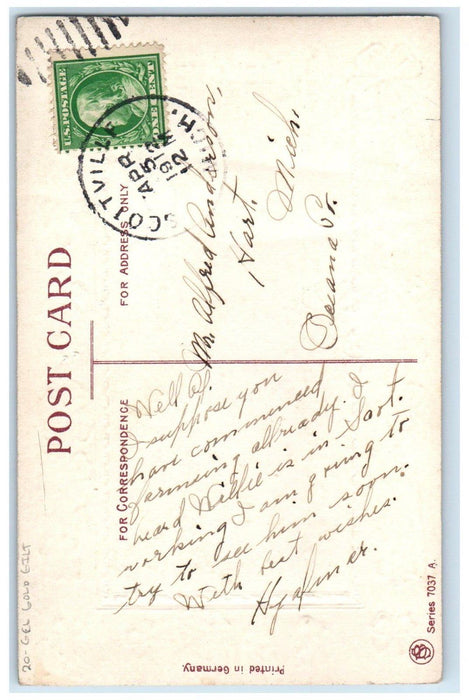 POST CARD
U.S. POSTAGE
ONE CENT
SCOTTVILLE
MICH.
APR
5
12 M
1912
FOR ADDRESS ONLY
Mr. Alfred Anderson,
Hart,
Mich.
Oceana Co.
FOR CORRESPONDENCE
Well Al.
I suppose you
have commenced
farmsing allready. I
heard Willie is in Scot.
working I am going to
try to see him soon.
With best wishes.
Hjalmar.
Printed in Germany.
Series 7037 A.
20-GEL GOLD GILT